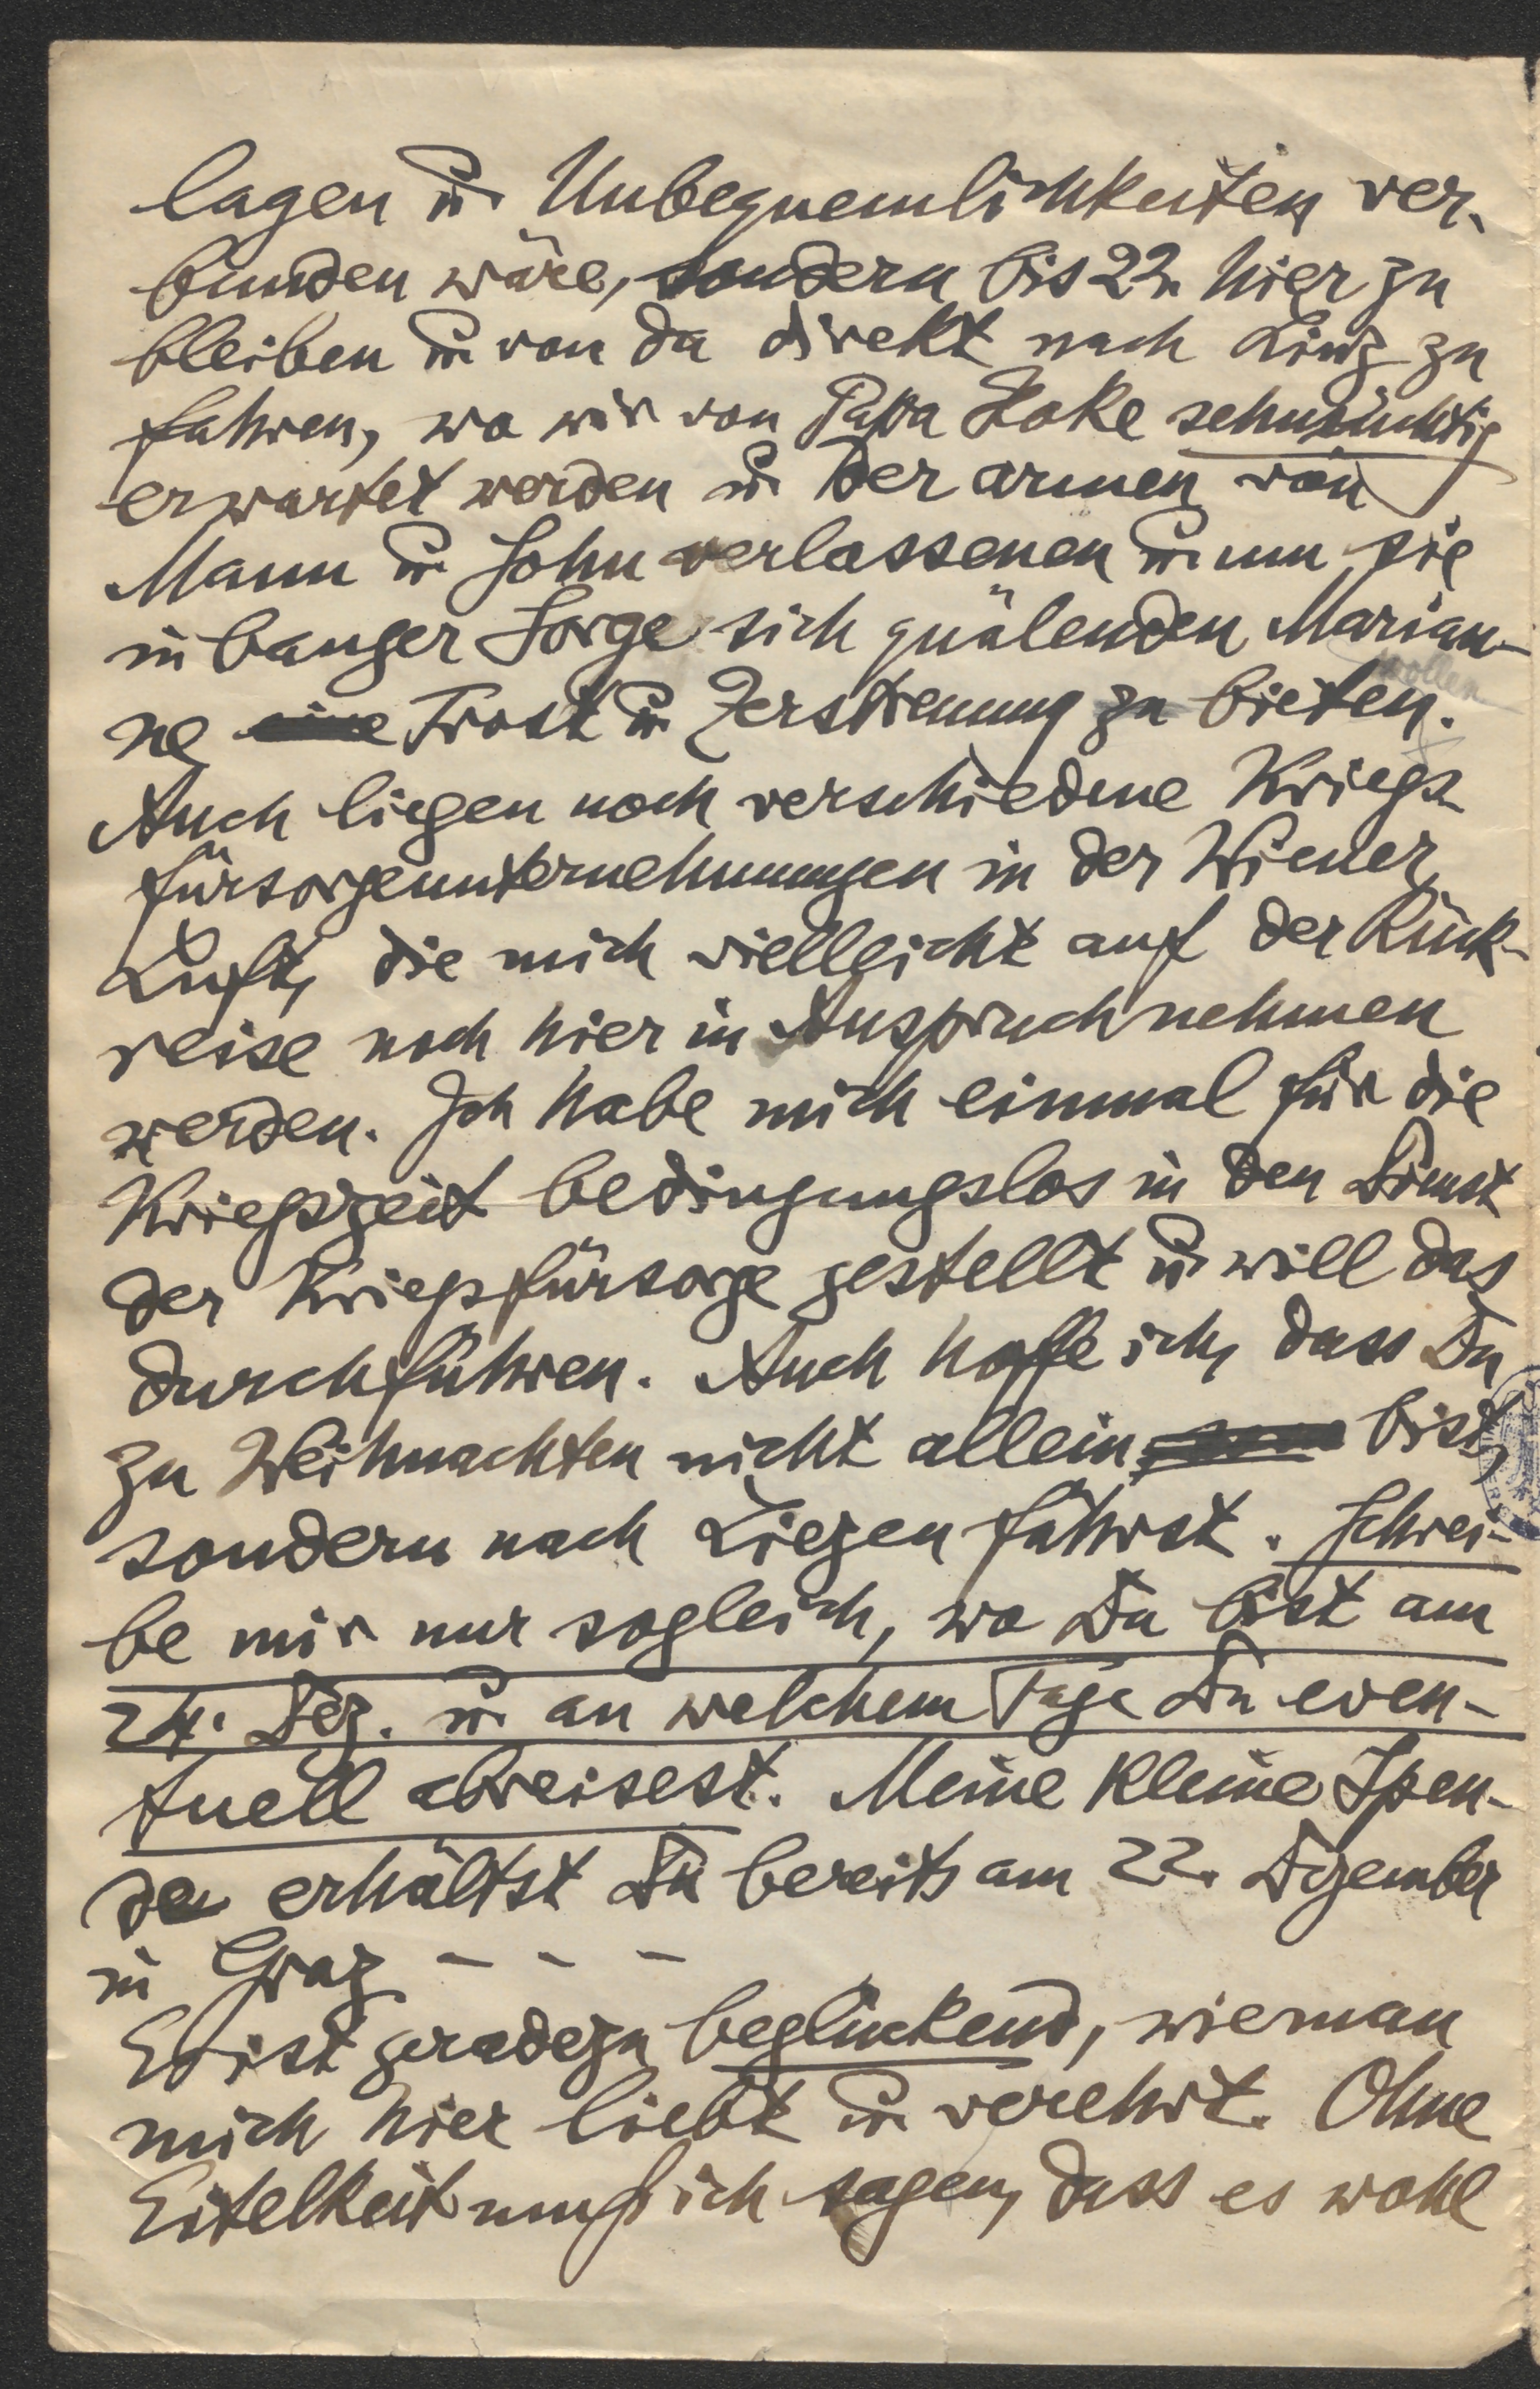 lagen u. Unbequemlichkeiten ver-
bunden wäre, sondern bis 22. hier zu
bleiben u. von da direkt nach Linz zu
fahren, wo wir von Papa Hoke sehnsüchtig
erwartet werden u. der armen von
Mann u. Sohn verlassenen u. um sie
in banger Sorge sich quälenden Marian-
wollen
ne eine Trost u. Zerstreuung zu bieten.
Auch liegen noch verschiedene Kriegs-
fürsorgeunternehmungen in der Wiener
Luft, die mich vielleicht auf der Rück-
reise noch hier in Anspruch nehmen
werden. Ich habe mich einmal für die
Kriegszeit bedingungslos in den Dienst
der Kriegsfürsorge gestellt u. will das
durchführen. Auch hoffe ich, dass Du
zu Weihnachten nicht allein bist,
sondern nach Liezen fährst. Schrei-
be mir nur sogleich, wo Du bist am
24. Dez. u. an welchem Tage Du even-
tuell abreisest. Meine kleine Spen-
de erhältst Du bereits am 22. Dezember
in Graz - - -
Es ist geradezu beglückend, wie man
mich hier liebt u. verehrt. Ohne
Eitelkeit muß ich sagen, dass es wohl